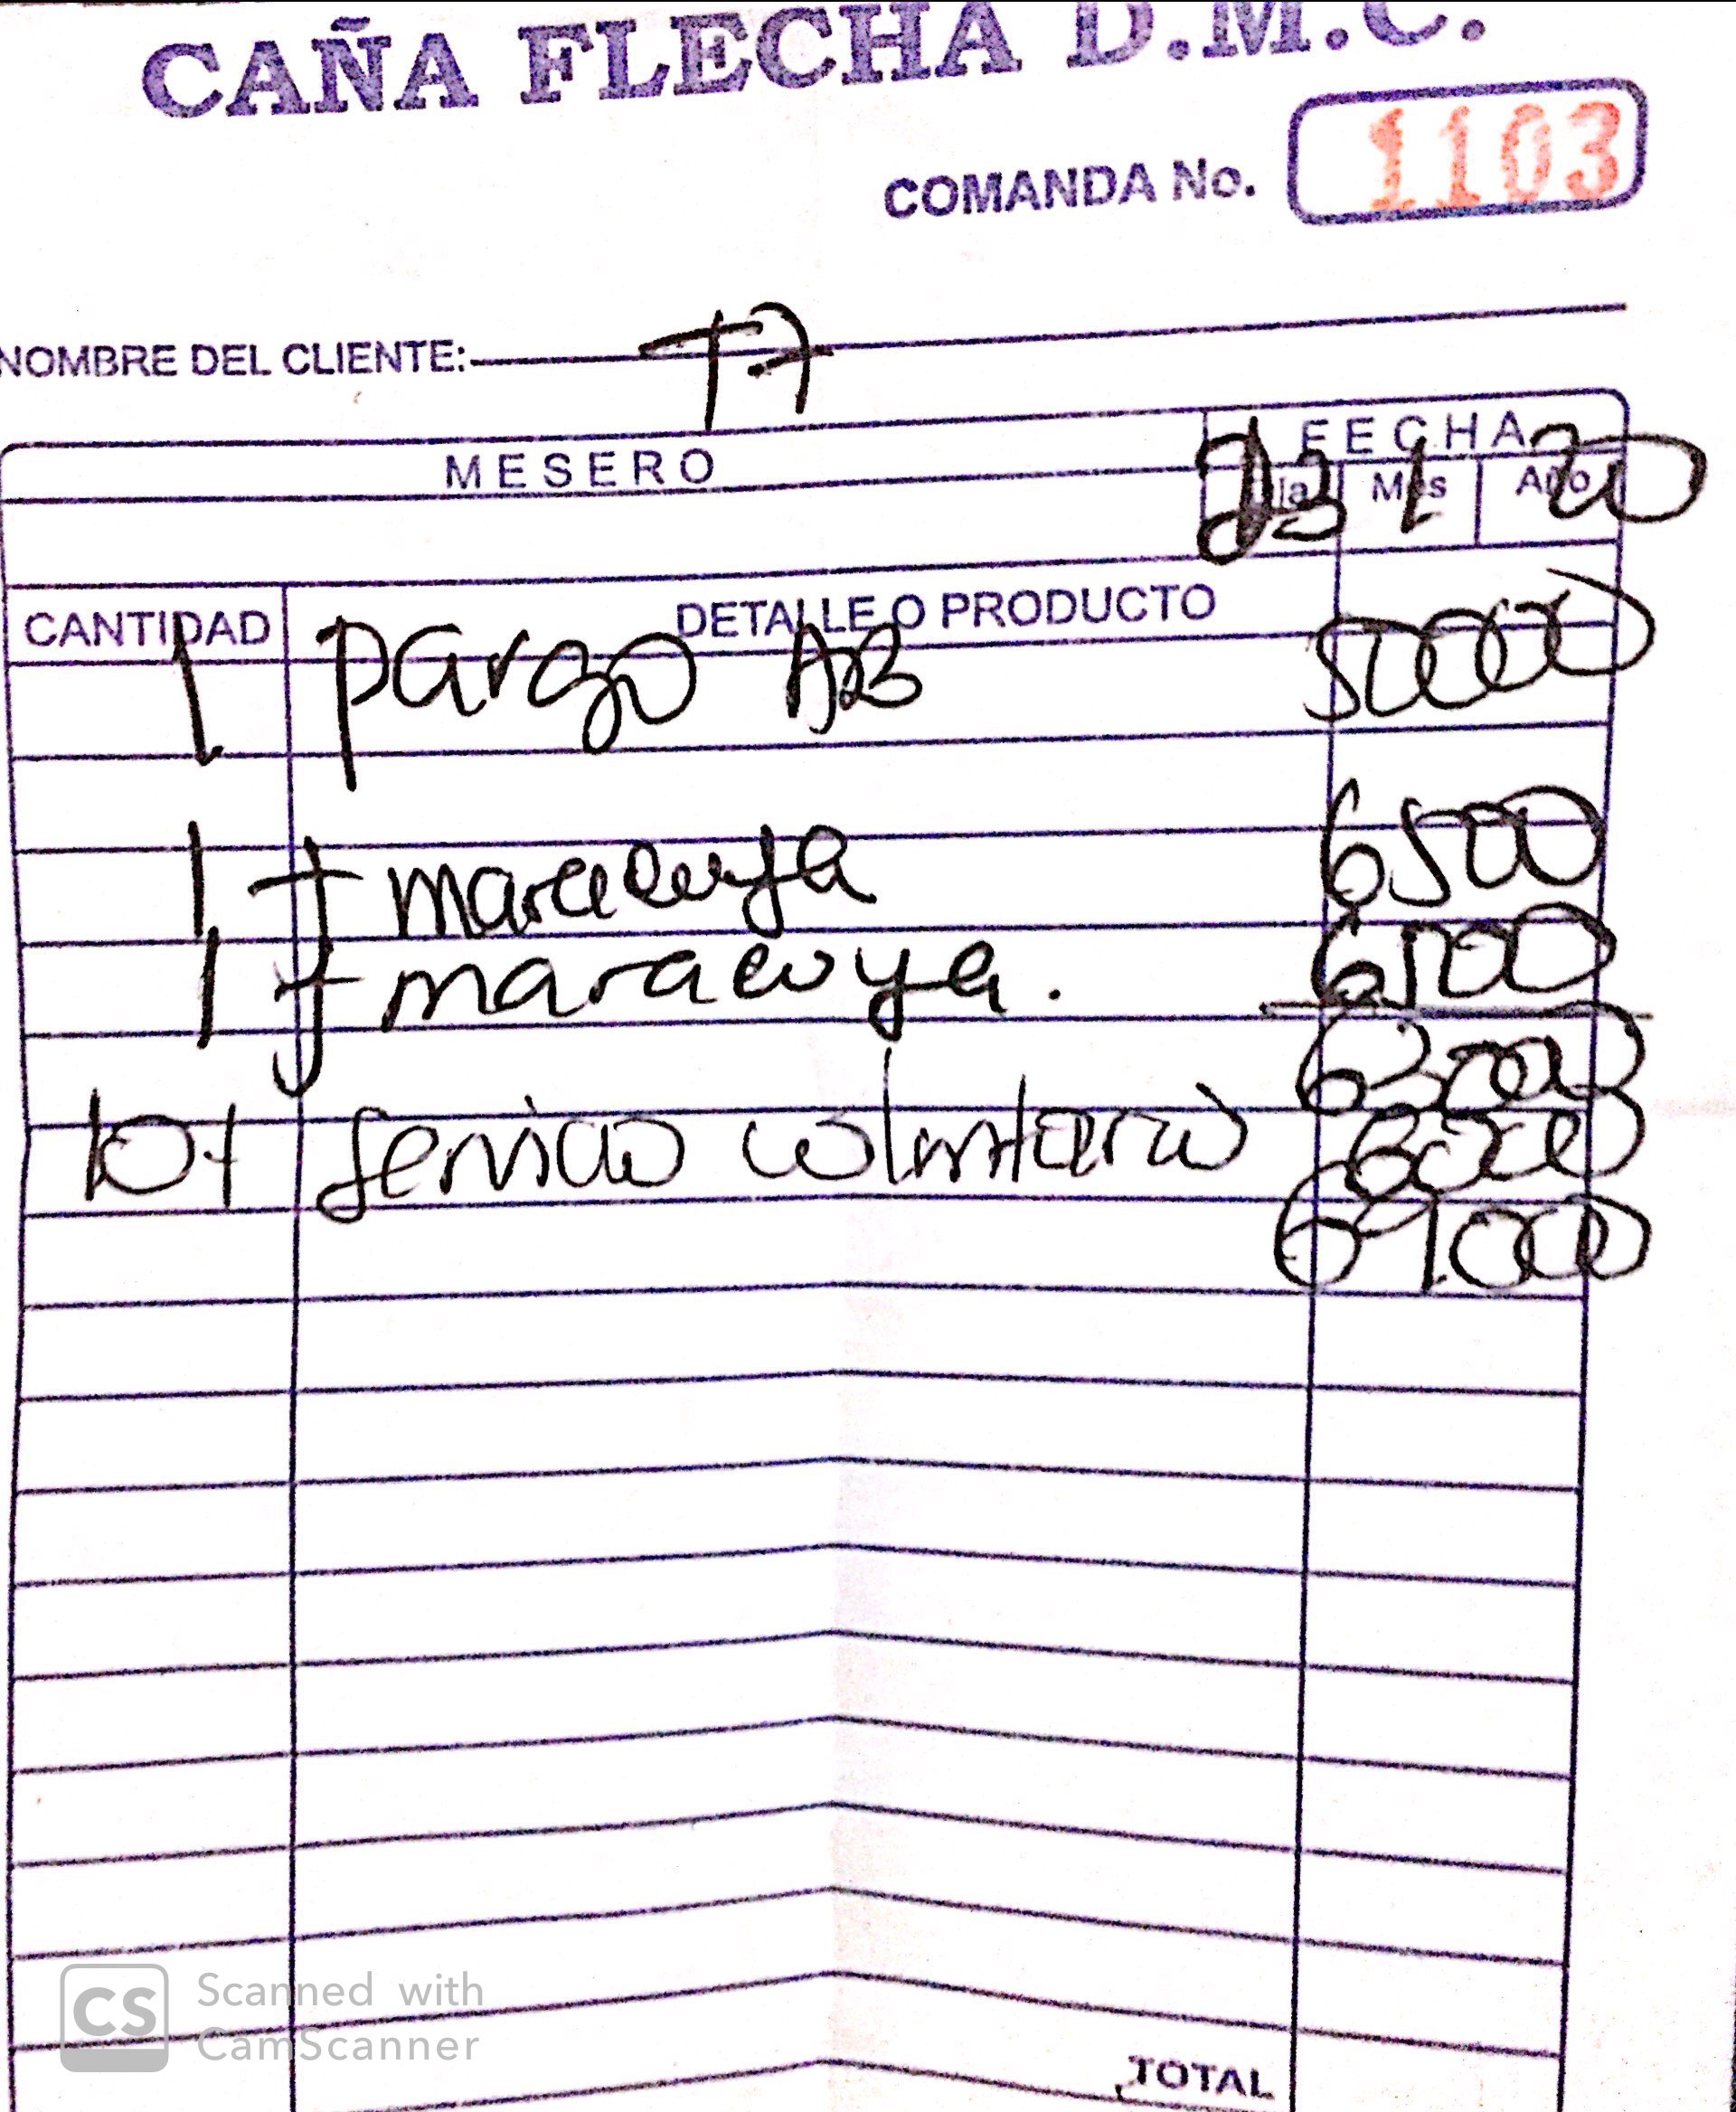 CAÑA FLECHA D.M.C.
COMANDA No. 1103
NOMBRE DEL CLIENTE: T7
MESERO FECHA
Día Mes Año
23 1 20
CANTIDAD DETALLE O PRODUCTO
1 pargo AB 50000
1 J maracuya 6500
1 J maracuya. 6500
63000
10% servicio voluntario 6000
69.000
TOTAL
CS Scanned with
CamScanner